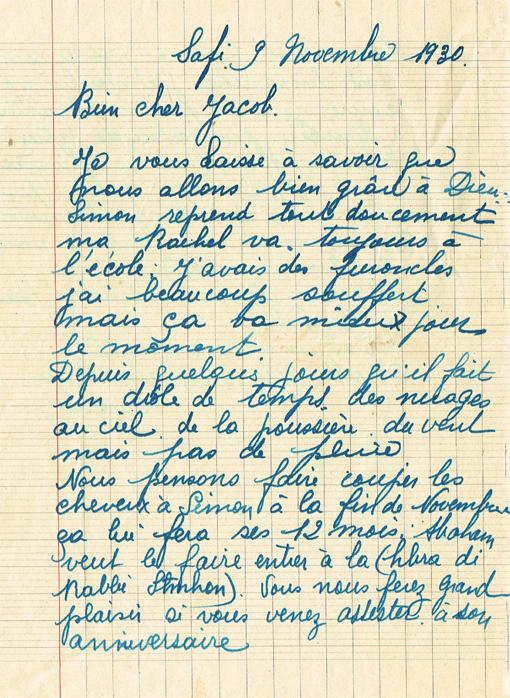 Safi. 9 Novembre 1930.
Bien cher Jacob.
Je vous laisse à savoir que
nous allons bien grâce à Dieu.
Simon reprend tout doucement
ma Rachel va toujours à
l'école. J'avais des furoncles
j'ai beaucoup souffert
mais ça va mieux pour
le moment.
Depuis quelques jours qu'il fait
un drôle de temps, des nuages
au ciel de la poussière du vent
mais pas de pluie
Nous pensons faire couper les
cheveux à Simon à la fin de Novembre
ça lui fera ses 12 mois. Abraham
veut le faire entrer à la (hbra di
Rabbi Shmhon). Vous nous ferez grand
plaisir si vous venez assister à son
anniversaire